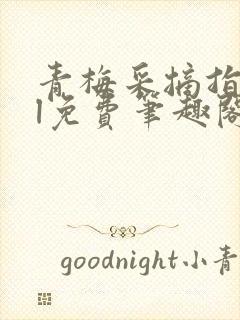 青梅采摘指
l免费笔趣阁
goodnight小青